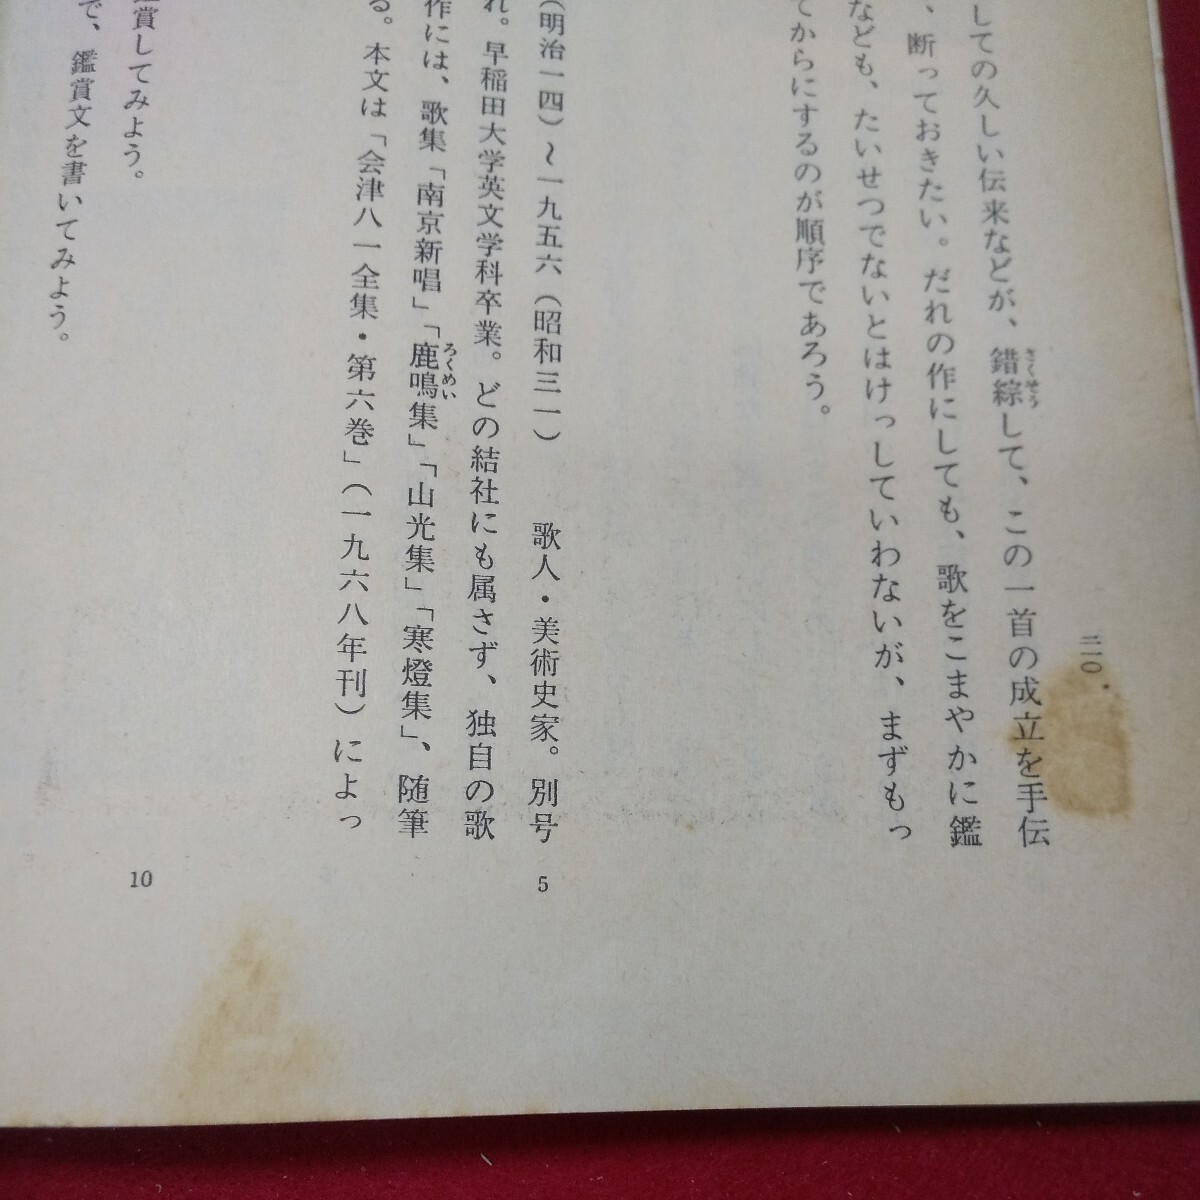 二一〇
しての久しい伝来などが、錯綜して、この一首の成立を手伝
さくそう
、断っておきたい。だれの作にしても、歌をこまやかに鑑
なども、たいせつでないとはけっしていわないが、まずもっ
てからにするのが順序であろう。
(明治一四)〜一九五六(昭和三一) 歌人・美術史家。別号
れ。早稲田大学英文学科卒業。どの結社にも属さず、独自の歌
作には、歌集「南京新唱」「鹿鳴集」「山光集」「寒燈集」、随筆
ろくめい
る。本文は「会津八一全集・第六巻」(一九六八年刊)によっ
鑑賞してみよう。
で、鑑賞文を書いてみよう。
5
10